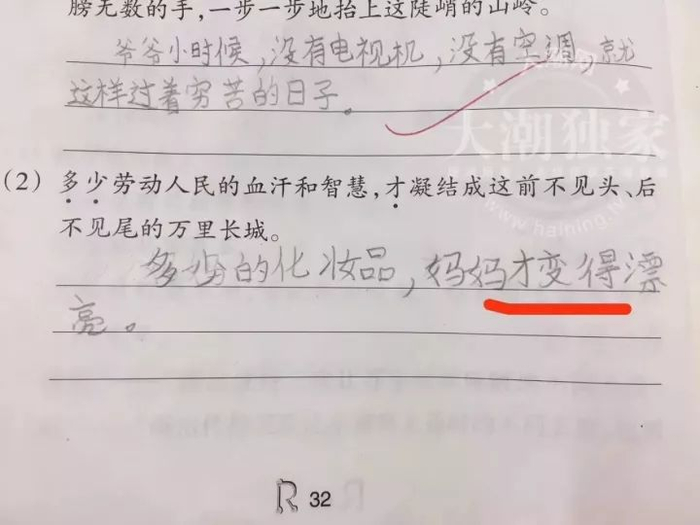 膀无数的手,一步一步地抬上这陡峭的山岭。
爷爷小时候,没有电视机,没有空调,就
这样过着穷苦的日子。
大潮独家
www.haining.tv
(2) 多少劳动人民的血汗和智慧,才凝结成这前不见头、后
不见尾的万里长城。
多少的化妆品,妈妈才变得漂
亮。
R 32